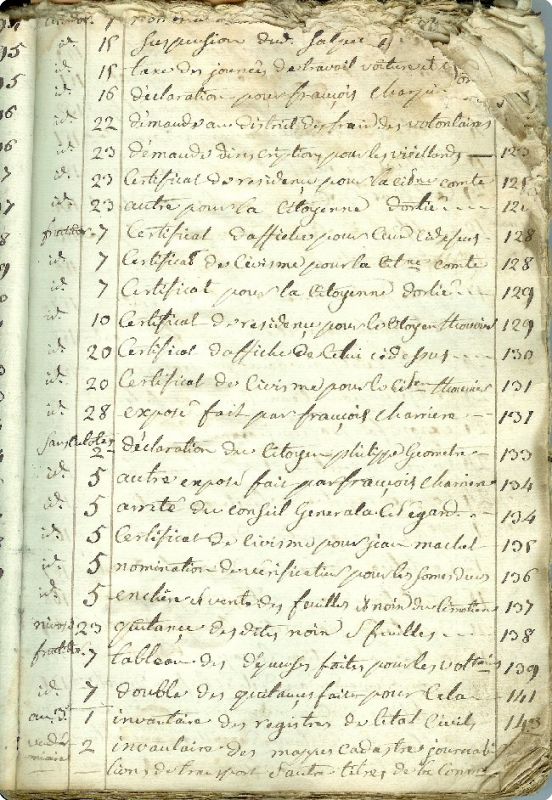 id. 15 suspension du
id. 15 taxe des journées de travail voiture et
id. 16 déclaration pour françois Charrier
id. 22 démande au district des frais des volontaires
id. 23 démande dinscription pour les vieillards 123
id. 23 Certificat de residence pour la citne comte 125
id. 23 autre pour la Citoyenne dorlié
7 Certificat d'affiches pour Ceux cidessus 128
id. 7 Certificat de Civisme pour la Citne comte 128
id. 7 Certificat pour la Citoyenne dorlié 129
id. 10 Certificat de residence pour le Citoyen 129
id. 20 Certificat d'affiche de Celui cidessus 130
id. 20 Certificat de Civisme pour le Citen 131
id. 28 exposé fait par françois Charriere 131
Sansculotes 2 déclaration du Citoyen philippe Geometre 133
id. 5 autre exposé fait par françois Charriere 134
id. 5 arrêté du Conseil General a Cet egard 134
id. 5 Certificat de Civisme pour jean 135
id. 5 nomination de verificateur pour les 136
id. 5 enchère & vente des feuilles & noix du Cimetiere 137
nivose 23 quitance des dites noix & feuilles 138
7 tableau des dépenses faites pour les voltaires 139
id. 7 double des quitances faites pour Cela 141
an 3. 1 inventaire des registres de l'état Civils 143
vendémiaire 2 inventaire des mappes Cadastre journal
tions de transport & autre titres de la Comm